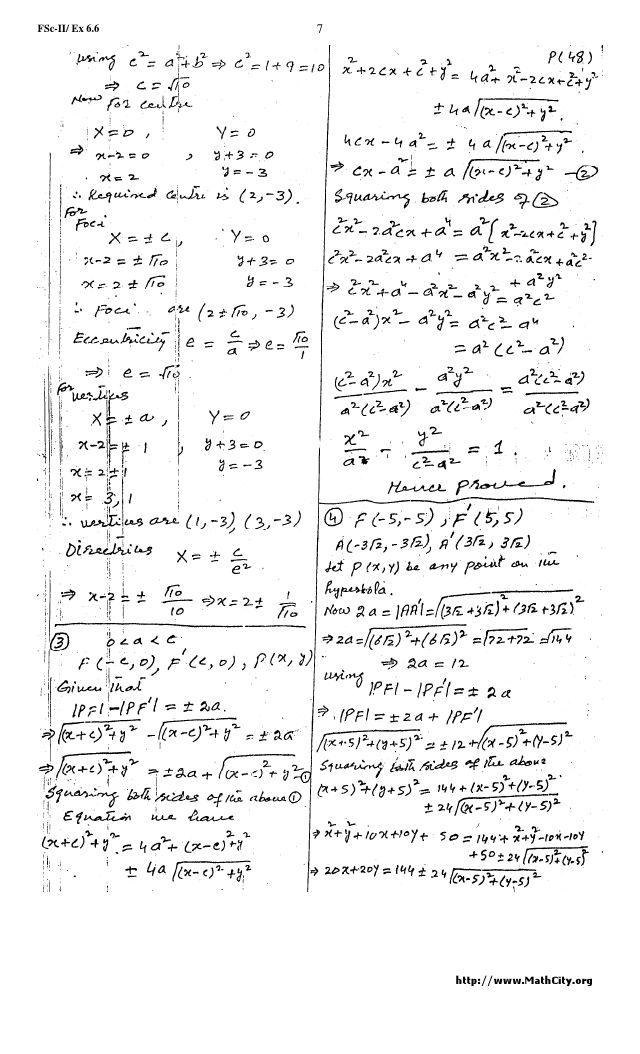 FSc-II/ Ex 6.6
7
using c² = a² + b² ⇒ c² = 1 + 9 = 10
⇒ c = √10
Now for centre
X = 0 , Y = 0
⇒ x-2 = 0 , y+3 = 0
x = 2 y = -3
∴ Required centre is (2, -3).
For Foci
X = ± c , Y = 0
x-2 = ± √10 y+3 = 0
x = 2 ± √10 y = -3
∴ Foci are (2 ± √10, -3)
Eccentricity e = c/a ⇒ e = √10/1
⇒ e = √10
for vertices
X = ± a , Y = 0
x-2 = ± 1 , y+3 = 0
x = 2 ± 1 y = -3
x = 3, 1
∴ vertices are (1, -3), (3, -3)
Directrices X = ± c/e²
⇒ x-2 = ± √10/10 ⇒ x = 2 ± 1/√10
③ 0 < a < c
F(-c, 0), F'(c, 0), P(x, y)
Given that
|PF| - |PF'| = ± 2a.
⇒ √((x+c)² + y²) - √((x-c)² + y²) = ± 2a
⇒ √((x+c)² + y²) = ± 2a + √((x-c)² + y²) -①
Squaring both sides of the above ①
Equation we have
(x+c)² + y² = 4a² + (x-c)² + y²
± 4a √((x-c)² + y²)
P(48)
x² + 2cx + c² + y² = 4a² + x² - 2cx + c² + y²
± 4a √((x-c)² + y²).
4cx - 4a² = ± 4a √((x-c)² + y²)
⇒ cx - a² = ± a √((x-c)² + y²) -②
Squaring both sides of ②
c²x² - 2a²cx + a⁴ = a² [x² - 2cx + c² + y²]
c²x² - 2a²cx + a⁴ = a²x² - 2a²cx + a²c²
+ a²y²
⇒ c²x² + a⁴ - a²x² - a²y² = a²c²
(c² - a²)x² - a²y² = a²c² - a⁴
= a² (c² - a²)
(c² - a²)x²/a²(c² - a²) - a²y²/a²(c² - a²) = a²(c² - a²)/a²(c² - a²)
x²/a² - y²/c² - a² = 1.
Hence Proved.
④ F(-5, -5), F'(5, 5)
A(-3√2, -3√2), A'(3√2, 3√2)
Let P(x, y) be any point on the
hyperbola.
Now 2a = |AA'| = √((3√2 + 3√2)² + (3√2 + 3√2)²
⇒ 2a = √((6√2)² + (6√2)² = √72+72 = √144
⇒ 2a = 12
using
|PF| - |PF'| = ± 2a
⇒ |PF| = ± 2a + |PF'|
√((x+5)² + (y+5)² = ± 12 + √((x-5)² + (y-5)²
Squaring both sides of the above
(x+5)² + (y+5)² = 144 + (x-5)² + (y-5)²
± 24 √((x-5)² + (y-5)²
⇒ x² + y² + 10x + 10y + 50 = 144 + x² + y² - 10x - 10y
+ 50 ± 24 √((x-5)² + (y-5)²
⇒ 20x + 20y = 144 ± 24 √((x-5)² + (y-5)²
http://www.MathCity.org